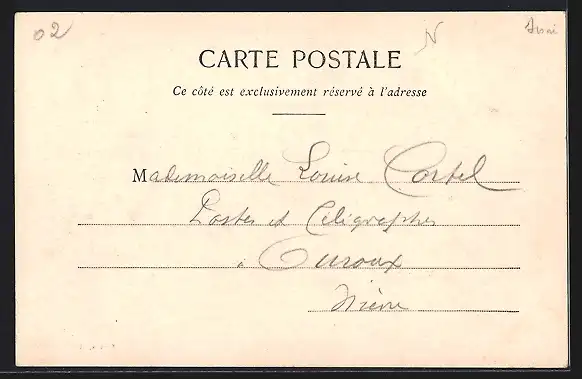 02
N
CARTE POSTALE
Ce côté est exclusivement réservé à l'adresse
Mademoiselle Louise Cortel
Postes et Télégraphes
à Ouroux
Nièvre